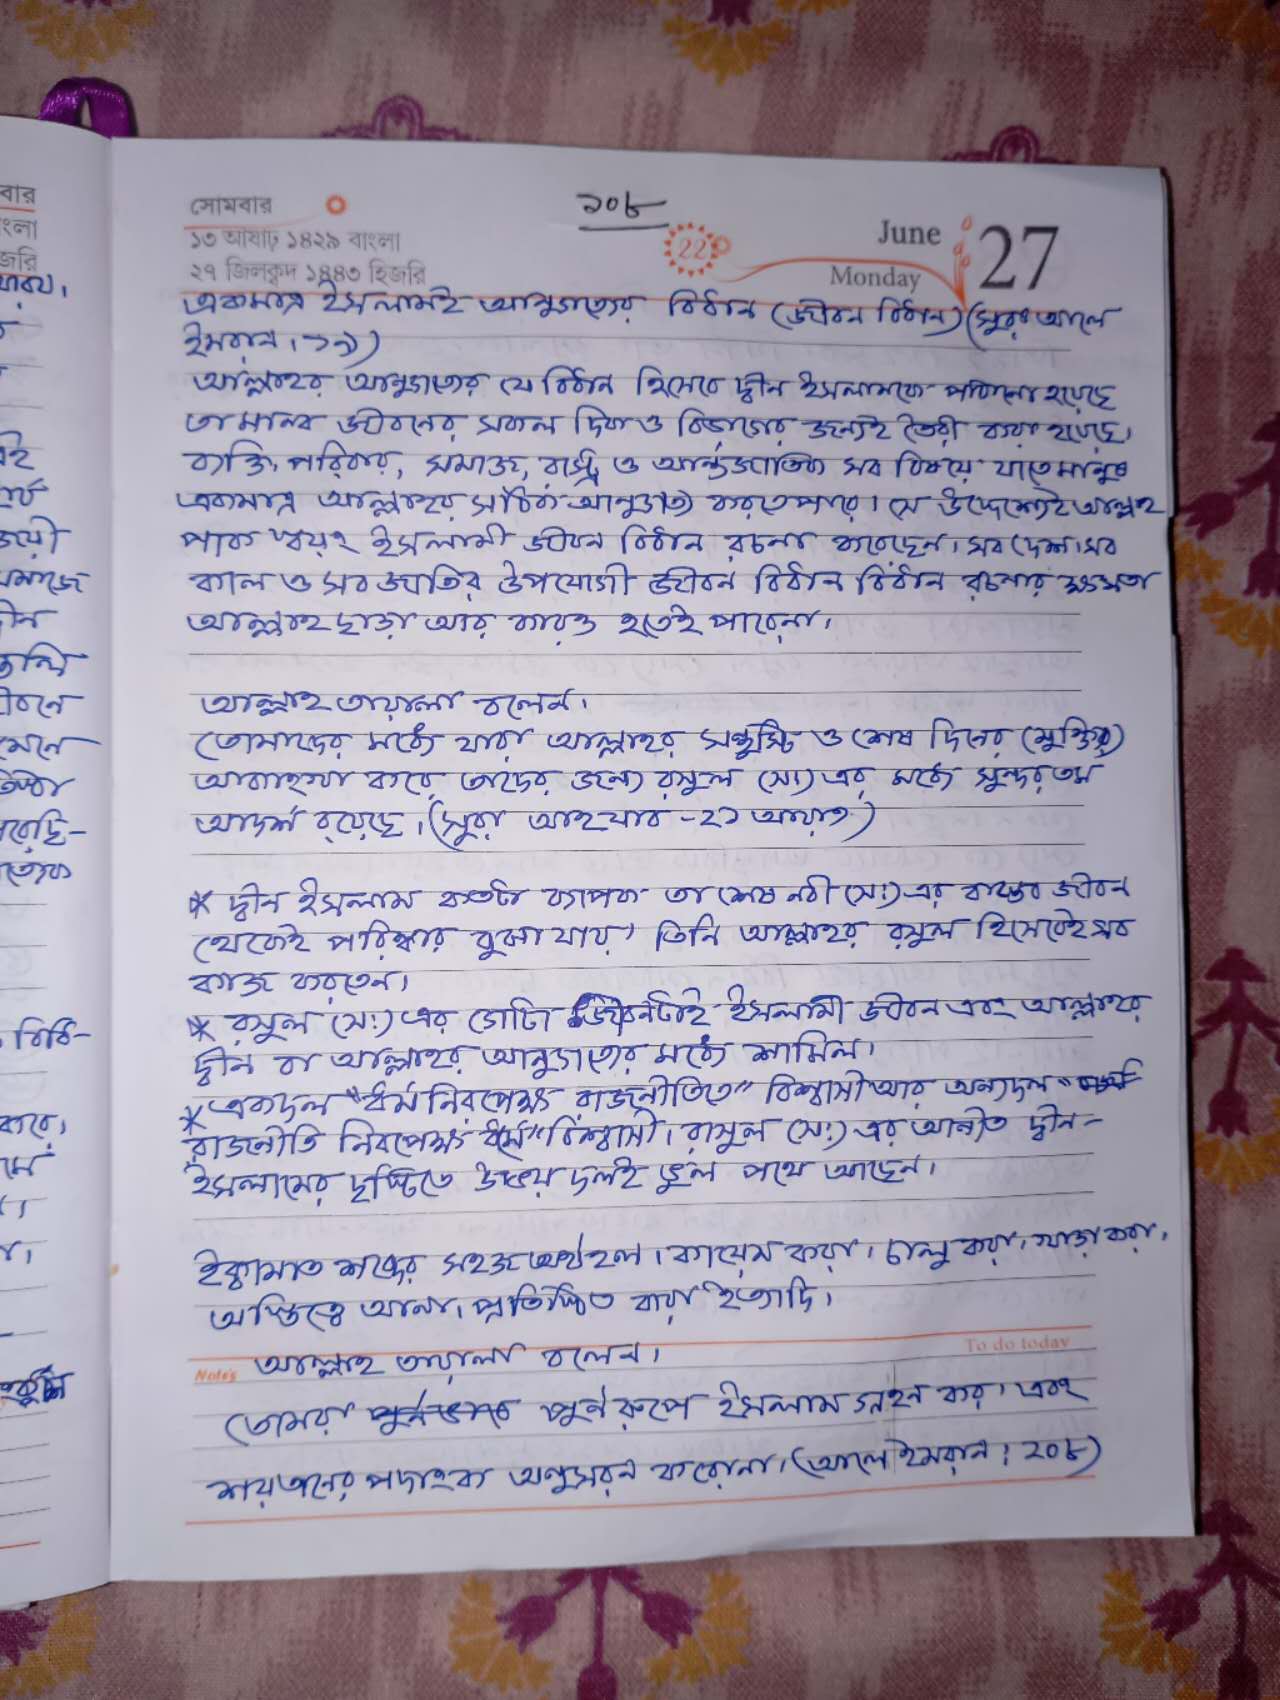 সোমবার
১০৮
১৩ আষাঢ় ১৪২৯ বাংলা
২৭ জিলক্বদ ১৪৪৩ হিজরি
22
June 27
Monday
একমাত্র ইসলামই আনুগত্যের বিধান (জীবন বিধান) (সুরাঃ আলে
ইমরান। ১৯)
আল্লাহর আনুগত্যের যে বিধান হিসেবে দ্বীন ইসলামকে পাঠানো হয়েছে
তা মানব জীবনের সকল দিক ও বিভাগের জন্যেই তৈরী করা হয়েছে।
ব্যক্তি, পরিবার, সমাজ, রাষ্ট্র ও আর্ন্তজাতিক সব বিষয়ে যাতে মানুষ
একমাত্র আল্লাহর সঠিক আনুগত্য করতে পারে। সে উদ্দেশ্যেই আল্লাহ
পাক স্বয়ং ইসলামী জীবন বিধান রচনা করেছেন। সব দেশ। সব
কাল ও সব জাতির উপযোগী জীবন বিধান বিধান রচনার ক্ষমতা
আল্লাহ ছাড়া আর কারও হতেই পারেনা।
আল্লাহ তায়ালা বলেন।
তোমাদের মধ্যে যারা আল্লাহর সন্তুষ্টি ও শেষ দিনের (মুক্তির)
আকাঙ্খা করে তাদের জন্য রসুল (সা) এর মধ্যে সুন্দরতম
আদর্শ রয়েছে। (সুরা আহযাব - ২১ আয়াত)
* দ্বীন ইসলাম কতটা ব্যাপক তা শেষ নবী (সাঃ) এর বাস্তব জীবন
থেকেই পরিস্কার বুঝা যায়। তিনি আল্লাহর রসুল হিসেবেই সব
কাজ করতেন।
* রসুল (সাঃ) এর গোটা জীবনটাই ইসলামী জীবন এবং আল্লাহর
দ্বীন বা আল্লাহর আনুগত্যের মধ্যে শামিল।
* একদল "ধর্ম নিরপেক্ষ রাজনীতিতে" বিশ্বাসী আর অন্যদল "
রাজনীতি নিরপেক্ষ ধর্মে" বিশ্বাসী। রাসুল (সাঃ) এর আনীত দ্বীন-
ইসলামের দৃষ্টিতে উভয় দলই ভুল পথে আছেন।
ইক্বামাত শব্দের সহজ অর্থ হল। কায়েম করা। চালু করা। খাড়া করা।
অস্তিত্বে আনা। প্রতিষ্ঠিত করা ইত্যাদি।
To do today
Notes আল্লাহ তায়ালা বলেন।
তোমরা পুর্নভাবে পুর্ন রুপে ইসলাম গ্রহন কর। এবং
শয়তানের পদাংক অনুসরন করোনা। (আলে ইমরান : ২০৮)